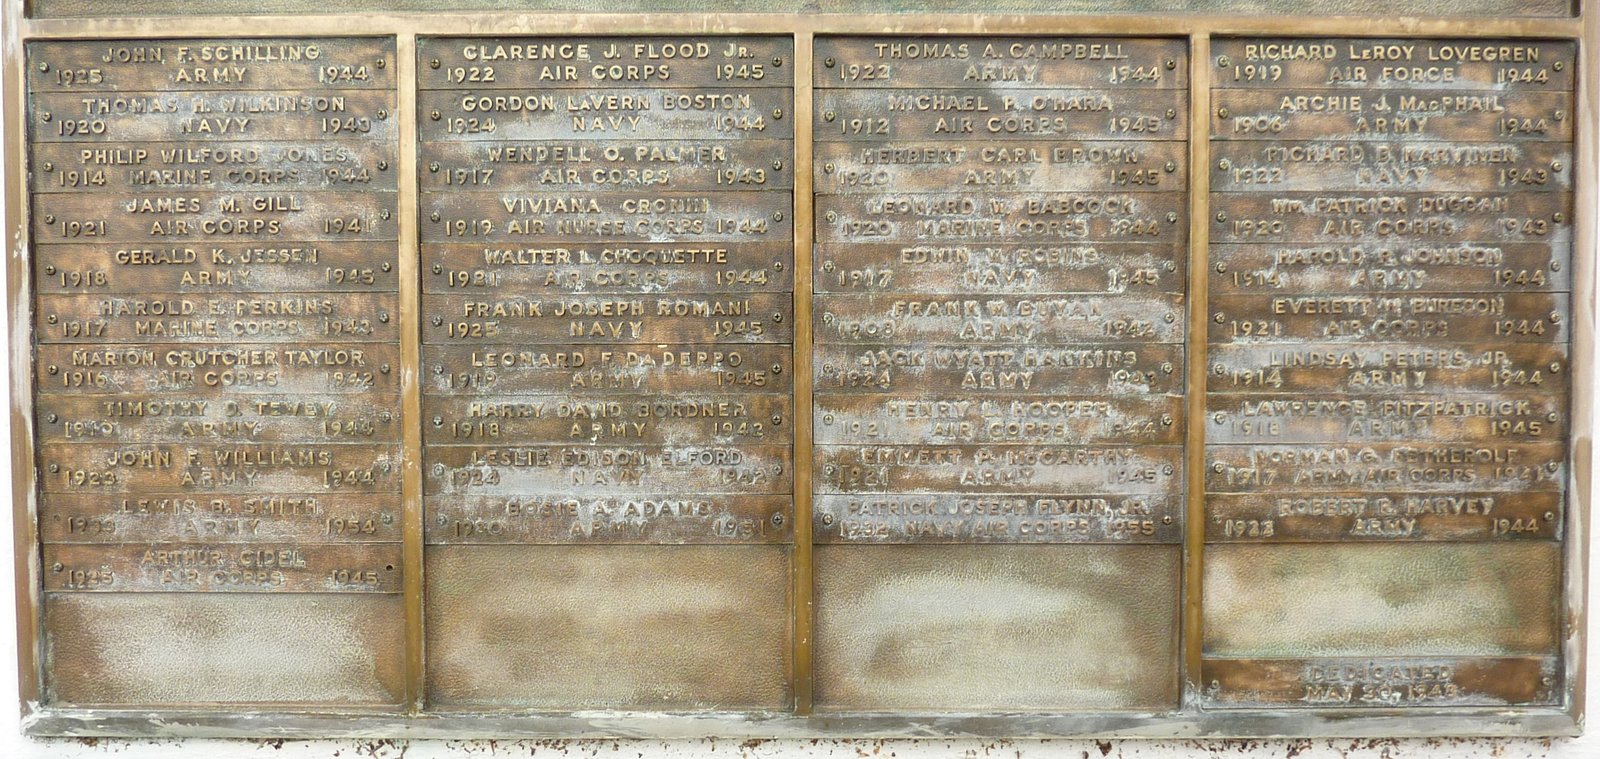 JOHN F. SCHILLING
1925 ARMY 1944
THOMAS H. WILKINSON
1920 NAVY 1943
PHILIP WILFORD JONES
1914 MARINE CORPS 1944
JAMES M. GILL
1921 AIR CORPS 1941
GERALD K. JESSEN
1918 ARMY 1945
HAROLD E. PERKINS
1917 MARINE CORPS 1943
MARION CRUTCHER TAYLOR
1916 AIR CORPS 1942
TIMOTHY D. TEVEY
ARMY 1944
JOHN F. WILLIAMS
1923 ARMY 1944
LEWIS B. SMITH
ARMY 1954
ARTHUR GIDEL
1925 AIR CORPS 1945
CLARENCE J. FLOOD JR.
1922 AIR CORPS 1945
GORDON LAVERN BOSTON
1924 NAVY 1944
WENDELL O. PALMER
1917 AIR CORPS 1943
VIVIANA CRONIN
1919 AIR NURSE CORPS 1944
WALTER L. CHOQUETTE
1921 AIR CORPS 1944
FRANK JOSEPH ROMANI
1925 NAVY 1945
LEONARD F. DADEPPO
1919 ARMY 1945
HARRY DAVID BORDNER
1918 ARMY 1942
LESLIE EDISON ELFORD
1924 NAVY 1942
BOSIE A. ADAMS
1930 ARMY 1951
THOMAS A. CAMPBELL
1922 ARMY 1944
MICHAEL P. O'HARA
1912 AIR CORPS 1945
HERBERT CARL BROWN
1920 ARMY 1945
LEONARD W. BABCOCK
1920 MARINE CORPS 1944
EDWIN M. ROBINS
1917 NAVY 1945
FRANK W.
1908 ARMY 1942
JACK WYATT HANKINS
1924 ARMY
HENRY L. HOOPER
1921 AIR CORPS 1944
EMMETT P. MCCARTHY
1921 ARMY 1945
PATRICK JOSEPH FLYNN, JR.
1932 NAVY AIR CORPS 1955
RICHARD LEROY LOVEGREN
1919 AIR FORCE 1944
ARCHIE J. MACPHAIL
1906 ARMY 1944
RICHARD B. KARVINEN
1922 NAVY 1943
WM. PATRICK DUGGAN
1920 AIR CORPS 1943
HAROLD R. JOHNSON
1914 ARMY 1944
EVERETT M. BURESON
1921 AIR CORPS 1944
LINDSAY PETERS, JR.
1914 ARMY 1944
LAWRENCE FITZPATRICK
1918 ARMY 1945
NORMAN G. FETHEROLF
1917 ARMY AIR CORPS 1941
ROBERT R. HARVEY
1922 ARMY 1944
DEDICATED
MAY 30, 1948